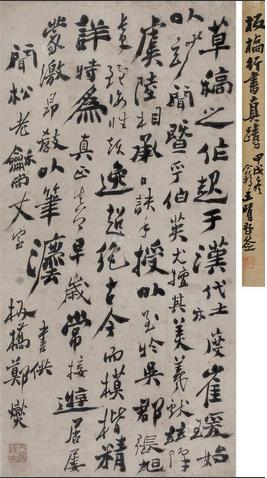 板橋行書真蹟
甲戌冬
草稿之作起于漢代杜度崔瑗始
以妙聞暨乎伯英尤擅其美羲獻茲降
虞陸相承口訣手授以至於吳郡張旭
長史雖姿性顛逸超絕古今而模楷精
詳特為真正早歲常接遊居屢
蒙激昂教以筆灋
聞松老丈室
板橋鄭燮